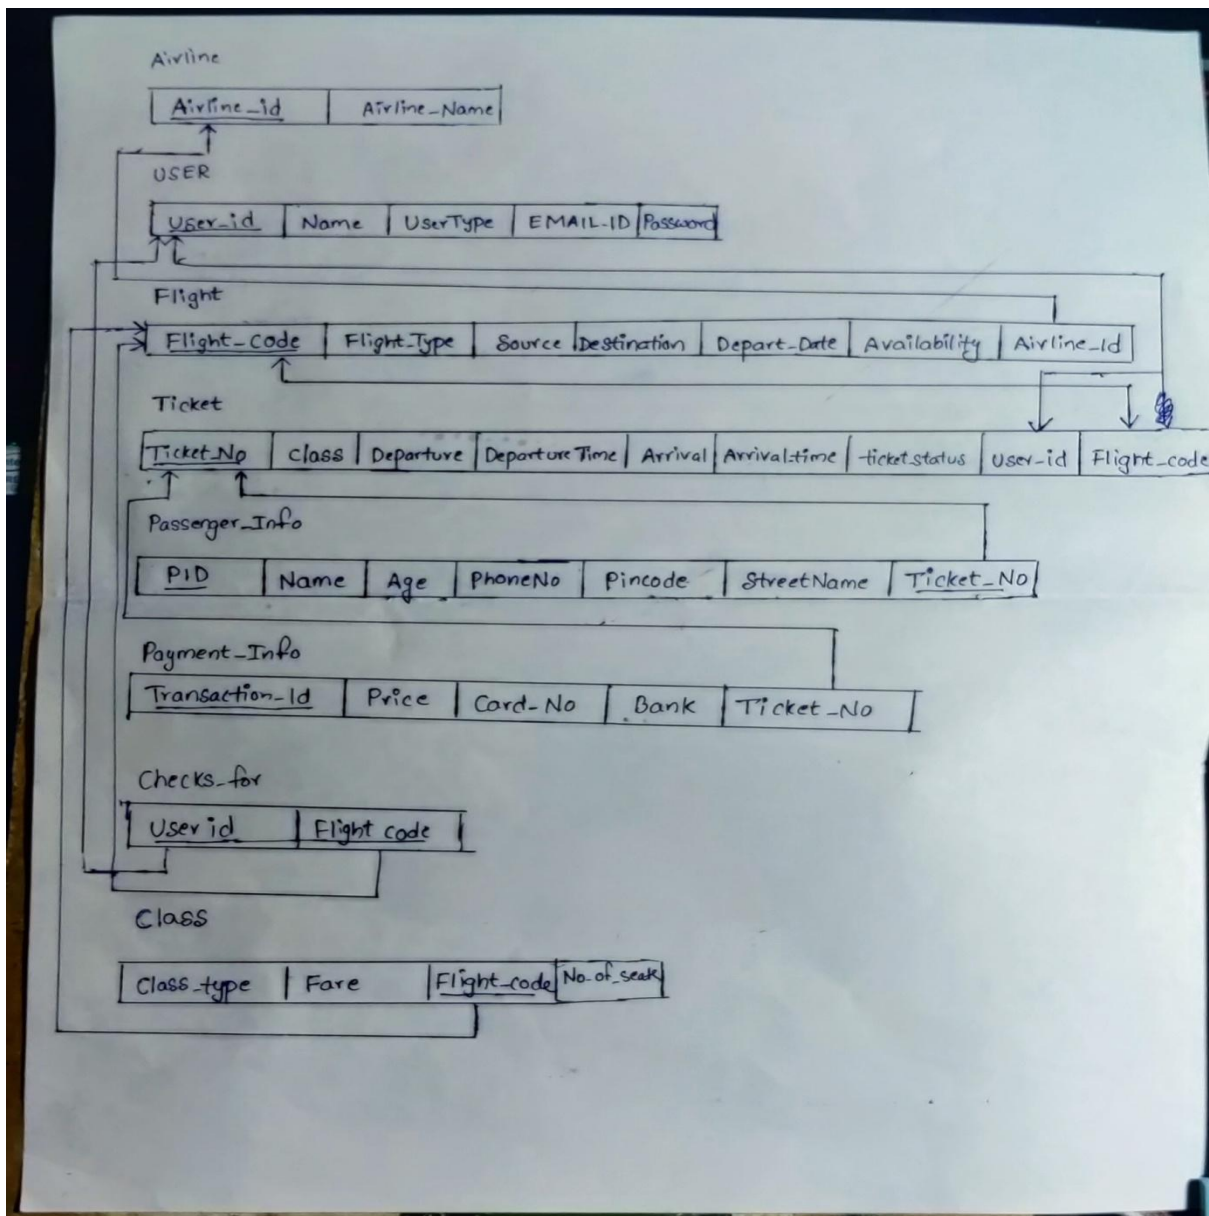 Airline
Airline_id Airline_Name
USER
User_id Name UserType EMAIL-ID Password
Flight
Flight_code Flight_Type Source Destination Depart_Date Availability Airline_Id
Ticket
Ticket_No class Departure Departure Time Arrival Arrival-time ticket_status User_id Flight_code
Passenger_Info
PID Name Age PhoneNo Pincode StreetName Ticket_No
Payment_Info
Transaction_Id Price Card_No Bank Ticket_No
Checks_for
User id Flight code
Class
Class_type Fare Flight_code No_of_seats